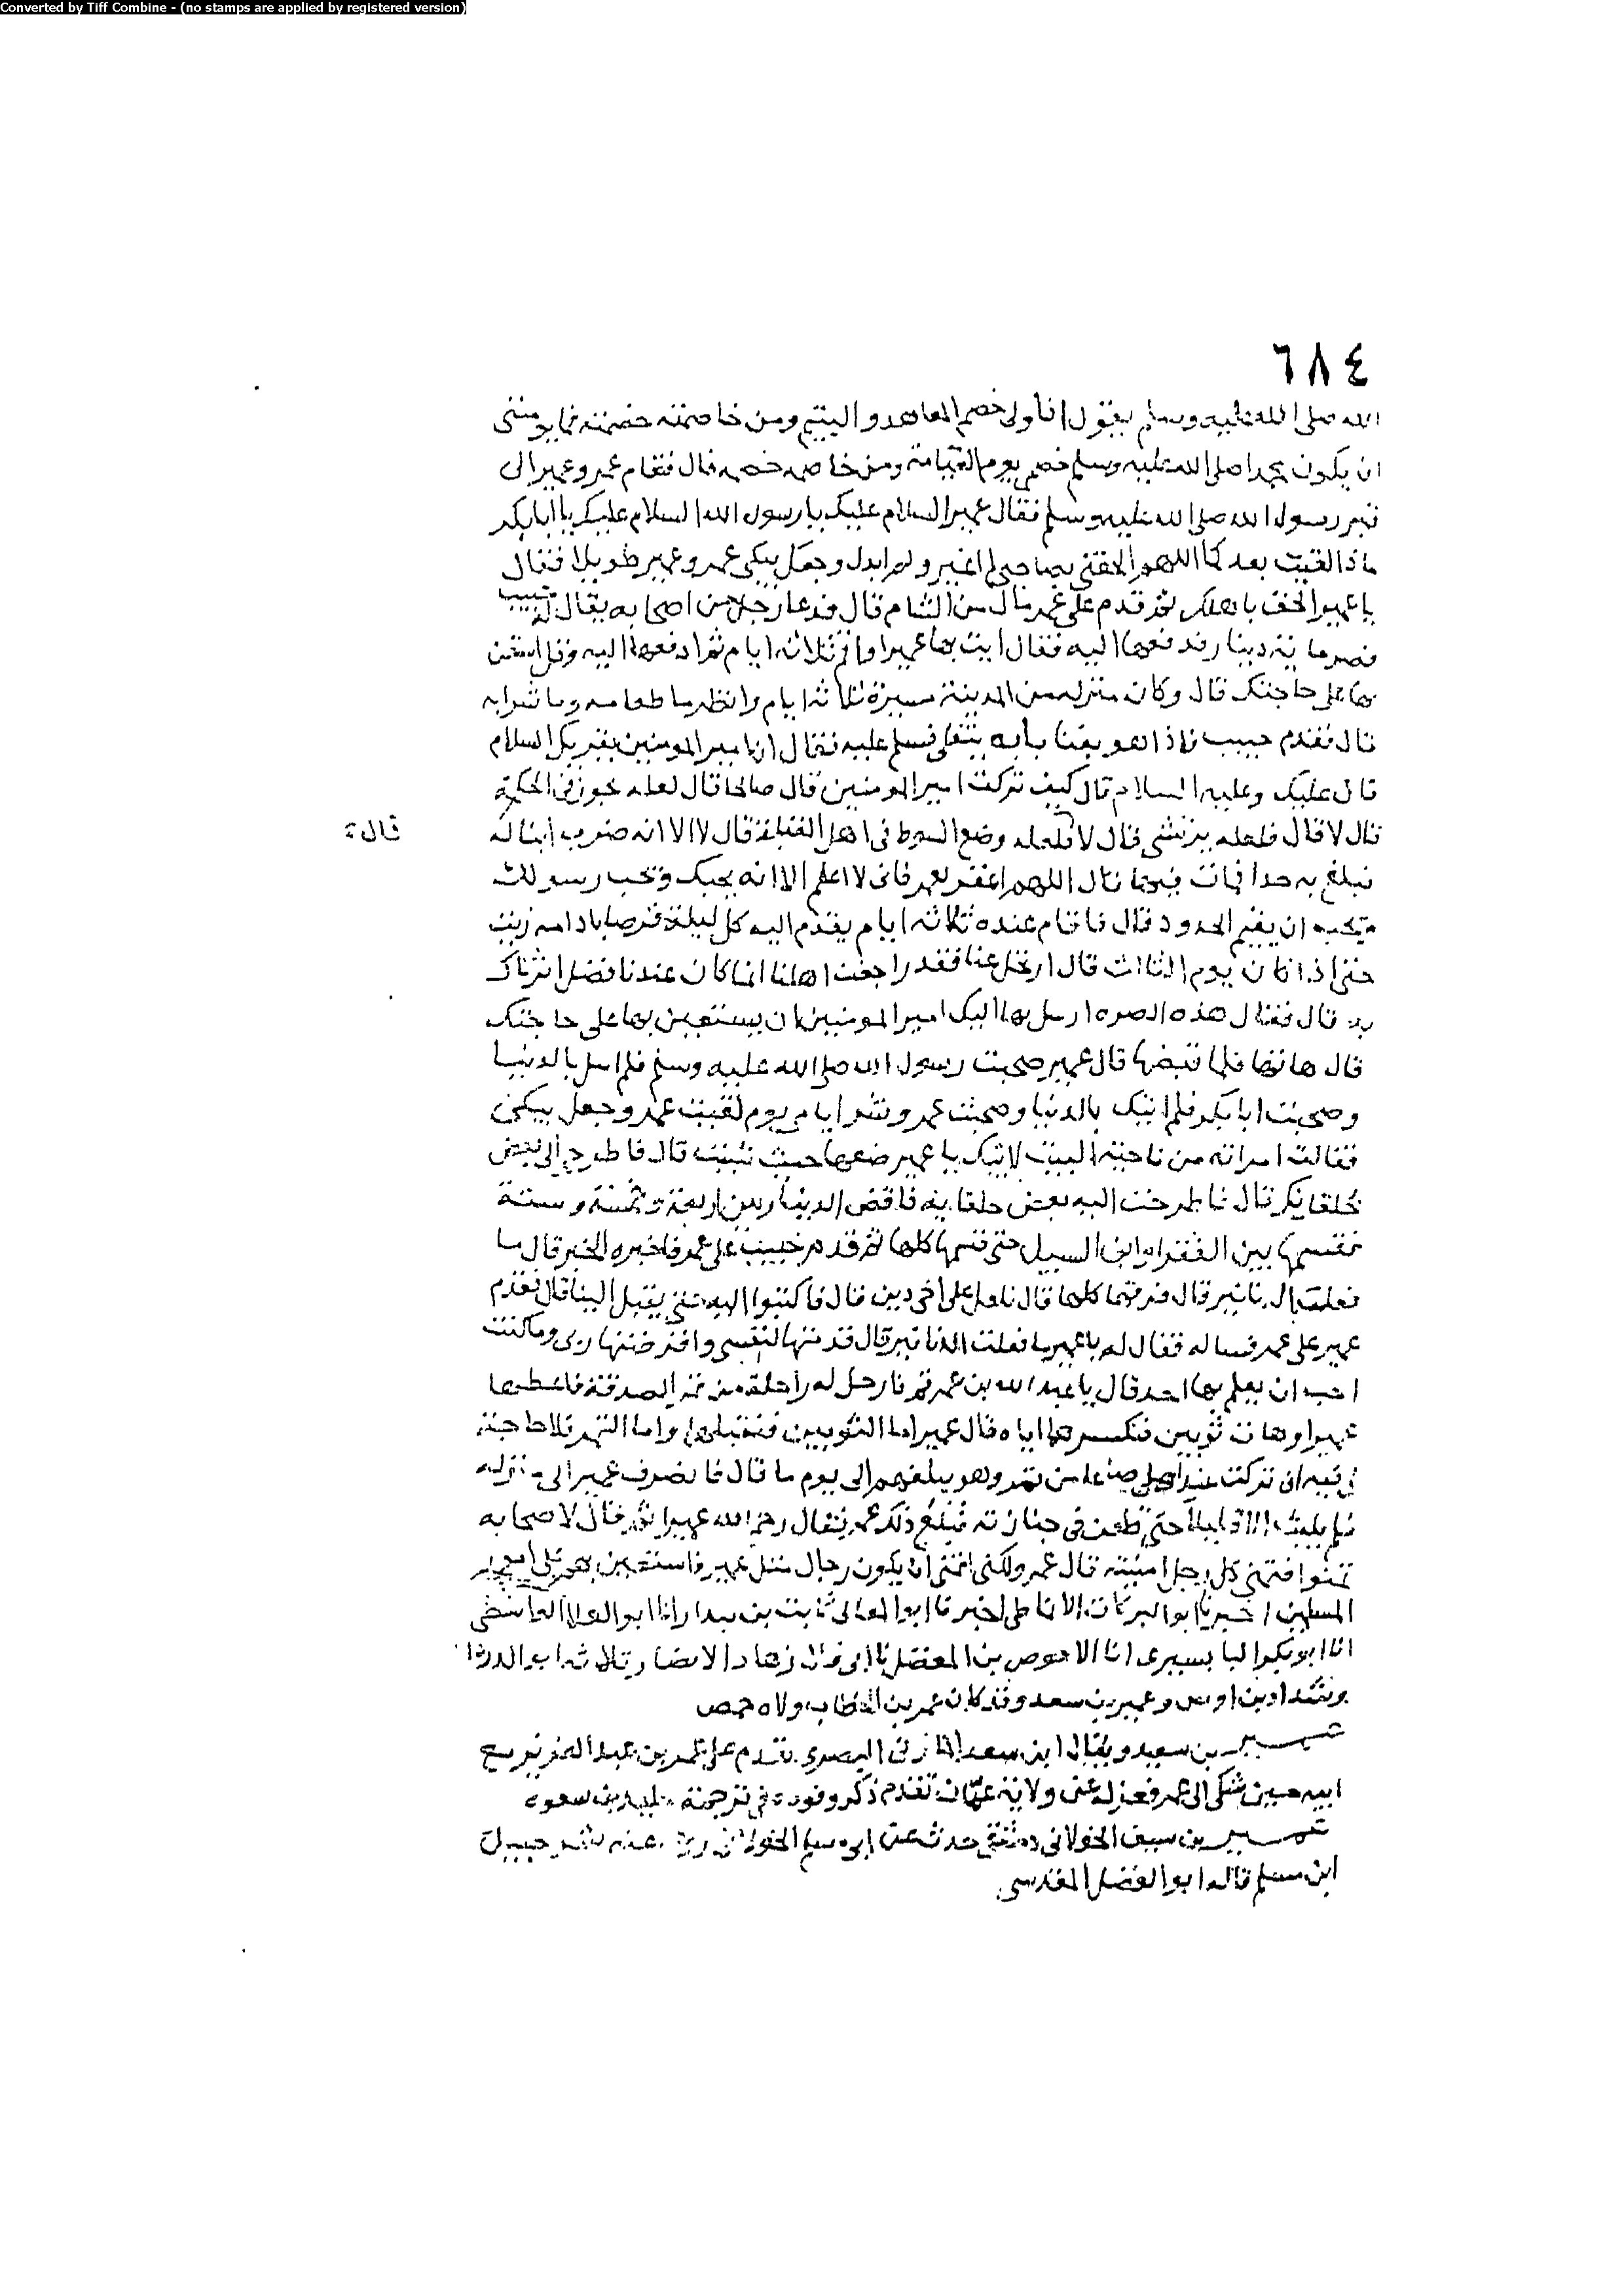 Converted by Tiff Combine - (no stamps are applied by registered version)
٦٨٤
الله صلى الله عليه وسلم يقول انا ولى خصم المعاهد واليتيم ومن خاصمته خصمته فما يومننى
ان يكون محمد صلى الله عليه وسلم خصمى يوم القيامة ومن خاصمه خصمه قال فقام عمر وعمير الى
قبر رسول الله صلى الله عليه وسلم فقال عمير السلام عليك يا رسول الله السلام عليك يا ابا بكر
ماذا لقيت بعدكما اللهم الحقنى بصاحبى لم اغير ولم ابدل وجعل يبكى عمر وعمير طويلا فقال
يا عمير الحق باهلك ثم قدم على عمر مال من الشام قال فدعا رجلا من اصحابه يقال له حبيب
فصر مائة دينار فدفعها اليه فقال ايت بها عميرا واقم ثلاثة ايام ثم ادفعها اليه وقل استعن
بها على حاجتك قال وكان منزله من المدينة مسيرة ثلاثة ايام وانظر ما طعامه وما شرابه
قال فقدم حبيب فاذا هو بفنا بابه يتفلى فسلم عليه فقال ان امير المومنين يقريك السلام
قال عليك وعليه السلام قال كيف تركت امير المومنين قال صالحا قال لعله يجوز فى الحكم
قال لا قال فلعله يرتشى قال لا قال فلعله وضع السوط فى اهل القبلة قال لا الا انه ضرب ابنا له
قالة
فبلغ به حدا فمات فيها قال اللهم اغفر لعمر فانى لا اعلم الا انه يحبك ويحب رسولك
ويحب ان يقيم الحدود قال فاقام عنده ثلاثة ايام يقدم اليه كل ليلة قرصا بادامه زيت
حتى اذا كان يوم الثالث قال ارتحل عنا فقد اجعت اهلنا انما كان عندنا فضل اثرناك
به قال فقال هذه الصره ارسل بها اليك امير المومنين ان يستعين بها على حاجتك
قال هاتها فلما قبضها قال عمير صحبت رسول الله صلى الله عليه وسلم فلم ابتل بالدنيا
وصحبت ابا بكر فلم ابتل بالدنيا وصحبت عمر وشر ايامى يوم لقيت عمر وجعل يبكى
فقالت امراته من ناحية البيت لا تبك يا عمير ضعها حيث شئت قال فاطرحى الى بعض
خلقانك قال فاطرحت اليه بعض خلقانه فاقض الدنانير بين اربعة وخمسة وستة
فقسمها بين الفقرا وابن السبيل حتى قسمها كلها ثم قدم حبيب على عمر فاخبره الخبر قال ما
فعلت الدنانير قال فرقها كلها قال فلعل على اخى دين قال فاكتبوا اليه حتى يقبل الينا قال فقدم
عمير على عمر فساله فقال له يا عمير ما فعلت الدنانير قال قدمتها لنفسى واقرضتها ربى وما كنت
احب ان يعلم بها احد قال يا عبد الله بن عمر قم فارحل له راحلة من تمر الصدقة فاعطها
عميرا وهات ثوبين فنكسوهما اياه قال عمير اما الثوبين فنقبلهما واما التمر فلا حاجة
لى فيه انى تركت عند اهلى صاعا من تمر وهو يبلغهم الى يوم ما قال فانصرف عمير الى منزله
فلم يلبث الا قليلا حتى طعن فى جنازته فبلغ ذلك عمر فقال رحم الله عميرا ثم قال لاصحابه
تمنوا فتمنى كل رجل امنيته قال عمر ولكنى اتمنى ان يكون رجال مثل عمير فاستعين بهم على امور
المسلمين اخبرنا ابو البركات الانماطى اخبرنا ابو المعالى ثابت بن بندار انا ابو العلا الواسطى
انا ابو بكر البابسيرى انا الاحوص بن المفضل نا ابى قال زهاد الانصار ثلاثة ابو الدردا
وشداد بن اوس وعمير بن سعد وقد كان عمر بن الخطاب ولاه حمص
عمير بن سعيد ويقال ابن سعد المازنى البصرى تقدم على عمر بن عبد العزيز مع
ابيه حين شكى الى عمر فعزله عن ولاية عمان تقدم ذكر وفوده فى ترجمة سعوه
عمير بن سيف الخولانى دمشقى حدث عن ابى مسلم الخولانى روى عنه شرحبيل
ابن مسلم قاله ابو الفضل المقدسى